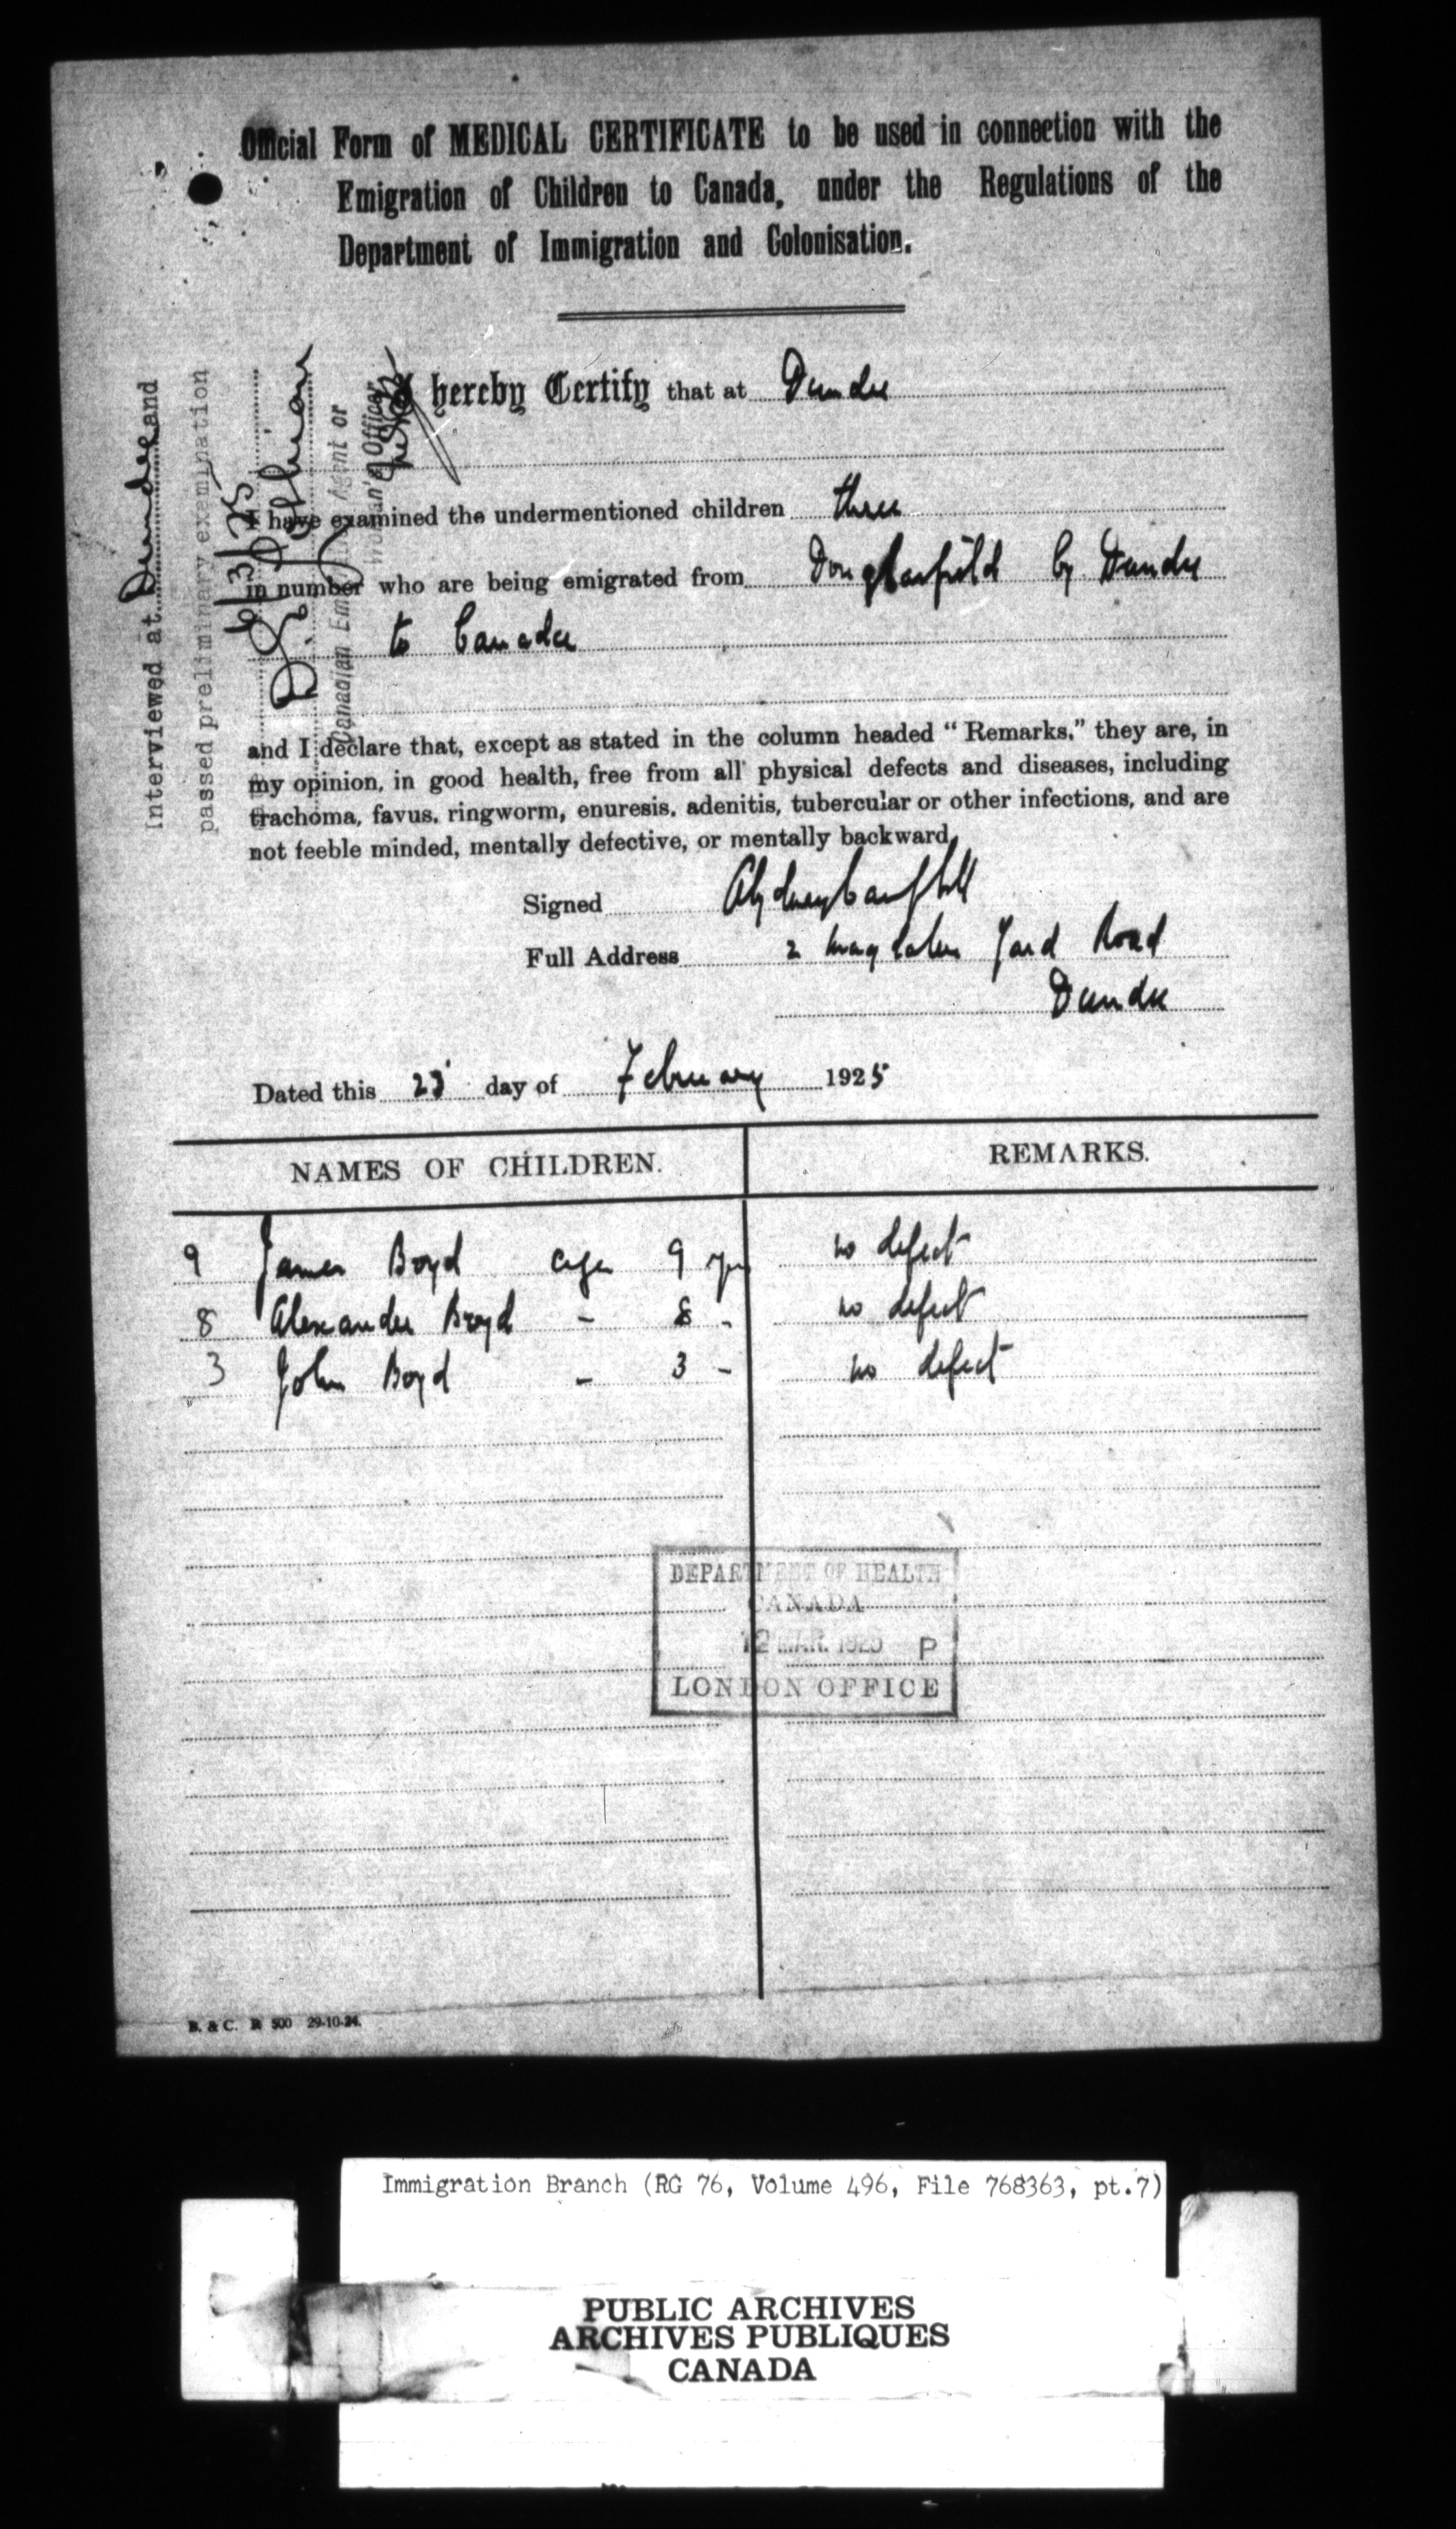 Official Form of MEDICAL CERTIFICATE to be used in connection with the
Emigration of Children to Canada, under the Regulations of the
Department of Immigration and Colonisation.
Interviewed at Dundee and
passed preliminary examination
6/3/25
Canadian Emi Agent or
Woman's Officer
I hereby Certify that at Dundee
I have examined the undermentioned children three
in number who are being emigrated from Douglasfield by Dundee
to Canada
and I declare that, except as stated in the column headed “ Remarks,” they are, in
my opinion, in good health, free from all physical defects and diseases, including
trachoma, favus, ringworm, enuresis, adenitis, tubercular or other infections, and are
not feeble minded, mentally defective, or mentally backward.
Signed Campbell
Full Address 2 Magdalen Yard Road
Dundee
Dated this 23 day of February 1925
NAMES OF CHILDREN. REMARKS.
9 James Boyd age 9 yrs no defect
8 Alexander Boyd - 8 - no defect
3 John Boyd - 3 - no defect
DEPARTMENT OF HEALTH
CANADA
12 MAR. 1925 P
LONDON OFFICE
B. & C. R 500 29-10-24.
Immigration Branch (RG 76, Volume 496, File 768363, pt.7)
PUBLIC ARCHIVES
ARCHIVES PUBLIQUES
CANADA